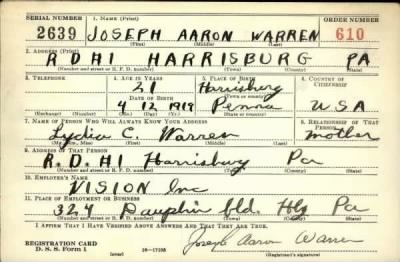 SERIAL NUMBER 1. NAME (Print) ORDER NUMBER
2639 JOSEPH AARON WARREN 610
(First) (Middle) (Last)
2. ADDRESS (Print)
R D #1 HARRISBURG PA
(Number and street or R. F. D. number) (Town) (County) (State)
3. TELEPHONE 4. AGE IN YEARS 5. PLACE OF BIRTH 6. COUNTRY OF CITIZENSHIP
21 Harrisburg
DATE OF BIRTH
4 12 1919 Penna USA
7. NAME OF PERSON WHO WILL ALWAYS KNOW YOUR ADDRESS 8. RELATIONSHIP OF THAT PERSON
Lydia C. Warren mother
(Mr., Mrs., Miss) (First) (Middle) (Last)
9. ADDRESS OF THAT PERSON
R. D. #1 Harrisburg Pa
(Number and street or R. F. D. number) (Town) (County) (State)
10. EMPLOYER'S NAME
VISION Inc
11. PLACE OF EMPLOYMENT OR BUSINESS
324 Dauphin bld. Hbg Pa
(Number and street or R. F. D. number) (Town) (County) (State)
I AFFIRM THAT I HAVE VERIFIED ABOVE ANSWERS AND THAT THEY ARE TRUE.
REGISTRATION CARD
D. S. S. Form 1 (over) 16—17105 Joseph Aaron Warren
(Registrant's signature)